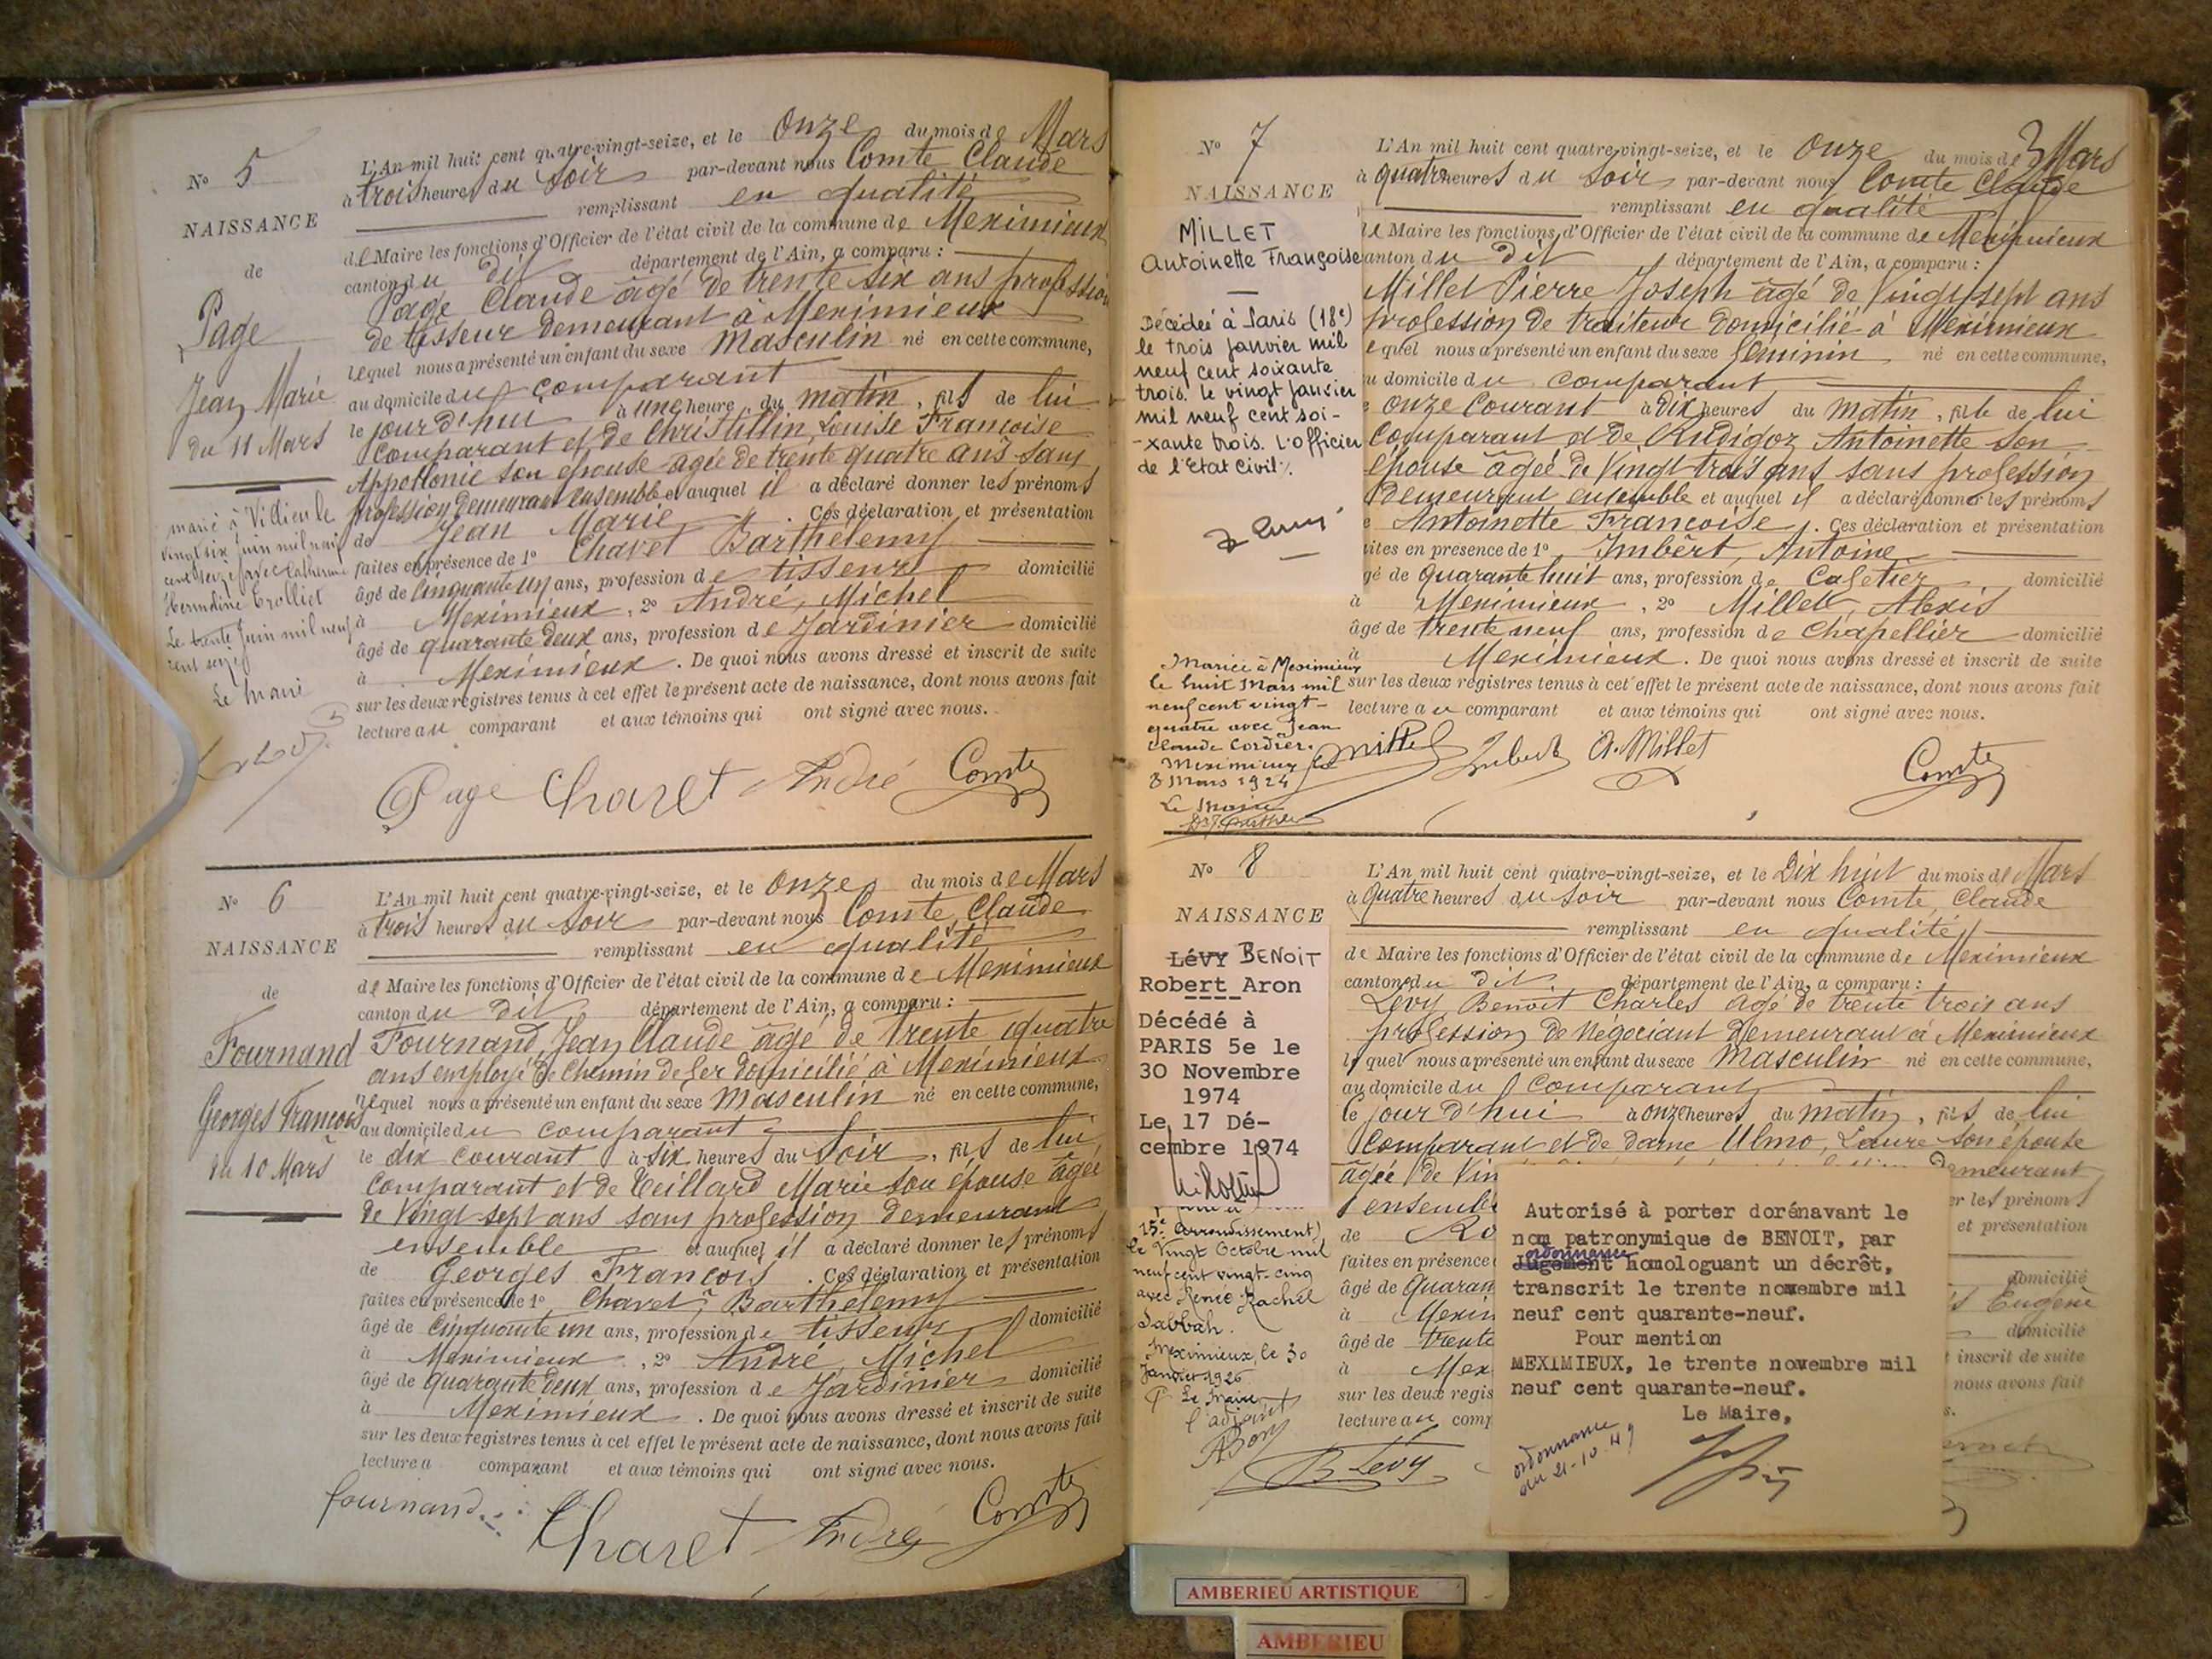 N° 5
NAISSANCE
de
Page
Jean Marie
du 11 Mars
marié à Villieu le
vingt six Juin mil neuf
cent seize avec Catherine
Hermdine Trolliet
Le trente Juin mil neuf
cent seize
Le Maire
L'An mil huit cent quatre-vingt-seize, et le Onze du mois de Mars
à trois heures du Soir par-devant nous Comte Claude
remplissant en qualité
de Maire les fonctions d'Officier de l'état civil de la commune de Meximieux
canton du dit département de l'Ain, a comparu :
Page Claude âgé de trente six ans profession
de tisseur demeurant à Meximieux
lequel nous a présenté un enfant du sexe Masculin né en cette commune,
au domicile du comparant
le jour d'hui à une heure du matin, fils de lui
Comparant et de Christillin, Louise Françoise
Appollonie son épouse agée de trente quatre ans sans
profession demeurant ensemble et auquel il a déclaré donner les prénoms
de Jean Marie. Ces déclaration et présentation
faites en présence de 1° Chavet Barthélemy
âgé de Cinquante un ans, profession de tisseur domicilié
à Meximieux, 2° André, Michel
âgé de quarante deux ans, profession de Jardinier domicilié
à Meximieux. De quoi nous avons dressé et inscrit de suite
sur les deux registres tenus à cet effet le présent acte de naissance, dont nous avons fait
lecture au comparant et aux témoins qui ont signé avec nous.
Page Chavet André Comte
N° 6
NAISSANCE
de
Fournand
Georges François
du 10 Mars
L'An mil huit cent quatre-vingt-seize, et le Onze du mois de Mars
à trois heures du Soir par-devant nous Comte Claude
remplissant en qualité
de Maire les fonctions d'Officier de l'état civil de la commune de Meximieux
canton du dit département de l'Ain, a comparu :
Fournand, Jean Claude âgé de trente quatre
ans employé de Chemin de fer domicilié à Meximieux
lequel nous a présenté un enfant du sexe Masculin né en cette commune,
au domicile du comparant
le dix courant à six heures du Soir, fils de lui
Comparant et de Teillard Marie son épouse âgée
de Vingt-sept ans sans profession demeurant
ensemble et auquel il a déclaré donner les prénoms
de Georges François. Ces déclaration et présentation
faites en présence de 1° Chavet Barthélemy
âgé de cinquante un ans, profession de tisseur domicilié
à Meximieux, 2° André, Michel
âgé de quarante deux ans, profession de Jardinier domicilié
à Meximieux. De quoi nous avons dressé et inscrit de suite
sur les deux registres tenus à cet effet le présent acte de naissance, dont nous avons fait
lecture a comparant et aux témoins qui ont signé avec nous.
fournand Chavet André Comte
N° 7
NAISSANCE
MILLET
Antoinette Françoise
Décédée à Paris (18e)
le trois janvier mil
neuf cent soixante
trois. le vingt janvier
mil neuf cent soi-
-xante trois. L'officier
de l'etat civil ./.
Mariée à Meximieux
le huit Mars mil
neuf cent vingt-
quatre avec Jean
Claude Cordier.
Meximieux le
8 Mars 1924
Le Maire
3
L'An mil huit cent quatre-vingt-seize, et le Onze du mois de Mars
à quatre heures du Soir par-devant nous Comte Claude
remplissant en qualité
de Maire les fonctions d'Officier de l'état civil de la commune de Meximieux
canton du dit département de l'Ain, a comparu :
Millet Pierre Joseph âgé de Vingt sept ans
profession de traiteur domicilié à Meximieux
equel nous a présenté un enfant du sexe féminin né en cette commune,
u domicile du comparant
e onze Courant à dix heures du matin, fille de lui
Comparant et de Rudigoz Antoinette son
épouse âgée de Vingt trois ans sans profession
demeurant ensemble et auquel il a déclaré donner les prénoms
e Antoinette Françoise. Ces déclaration et présentation
ites en présence de 1° Imbert, Antoine
gé de quarante huit ans, profession de Cafetier domicilié
à Meximieux, 2° Millet, Alexis
âgé de trente neuf ans, profession de Chapellier domicilié
à Meximieux. De quoi nous avons dressé et inscrit de suite
sur les deux registres tenus à cet effet le présent acte de naissance, dont nous avons fait
lecture au comparant et aux témoins qui ont signé avec nous.
Millet Imbert A. Millet Comte
N° 8
NAISSANCE
LéVY BENOIT
Robert Aron
Décédé à
PARIS 5e le
30 Novembre
1974
Le 17 Dé-
cembre 1974
15e arrondissement)
le Vingt Octobre mil
neuf cent vingt-cinq
avec Renée Rachel
Sabbah.
Meximieux, le 30
Janvier 1926
P. Le Maire
l'adjoint
L'An mil huit cent quatre-vingt-seize, et le Dix huit du mois de Mars
à Quatre heures du Soir par-devant nous Comte, Claude
remplissant en qualité
de Maire les fonctions d'Officier de l'état civil de la commune de Meximieux
canton du dit département de l'Ain, a comparu :
Lévy Benoit Charles agé de trente trois ans
profession de Négociant demeurant à Meximieux
lequel nous a présenté un enfant du sexe Masculin né en cette commune,
au domicile du Comparant
le jour d'hui à onze heures du matin, fils de lui
Comparant et de dame Ulmo, Laure son épouse
âgée de Vin demeurant
ensemble er les prénoms
de Ro et présentation
faites en présence
âgé de Quaran domicilié
à Mexim Eugène
âgé de trente domicilié
à Mex inscrit de suite
sur les deux regis nous avons fait
lecture au comp s.
B Lévy
Autorisé à porter dorénavant le
nom patronymique de BENOIT, par
ordonnance
Jugement homologuant un décrêt,
transcrit le trente novembre mil
neuf cent quarante-neuf.
Pour mention
MEXIMIEUX, le trente novembre mil
neuf cent quarante-neuf.
Le Maire,
ordonnance
du 21-10-49
AMBERIEU ARTISTIQUE
AMBERIEU